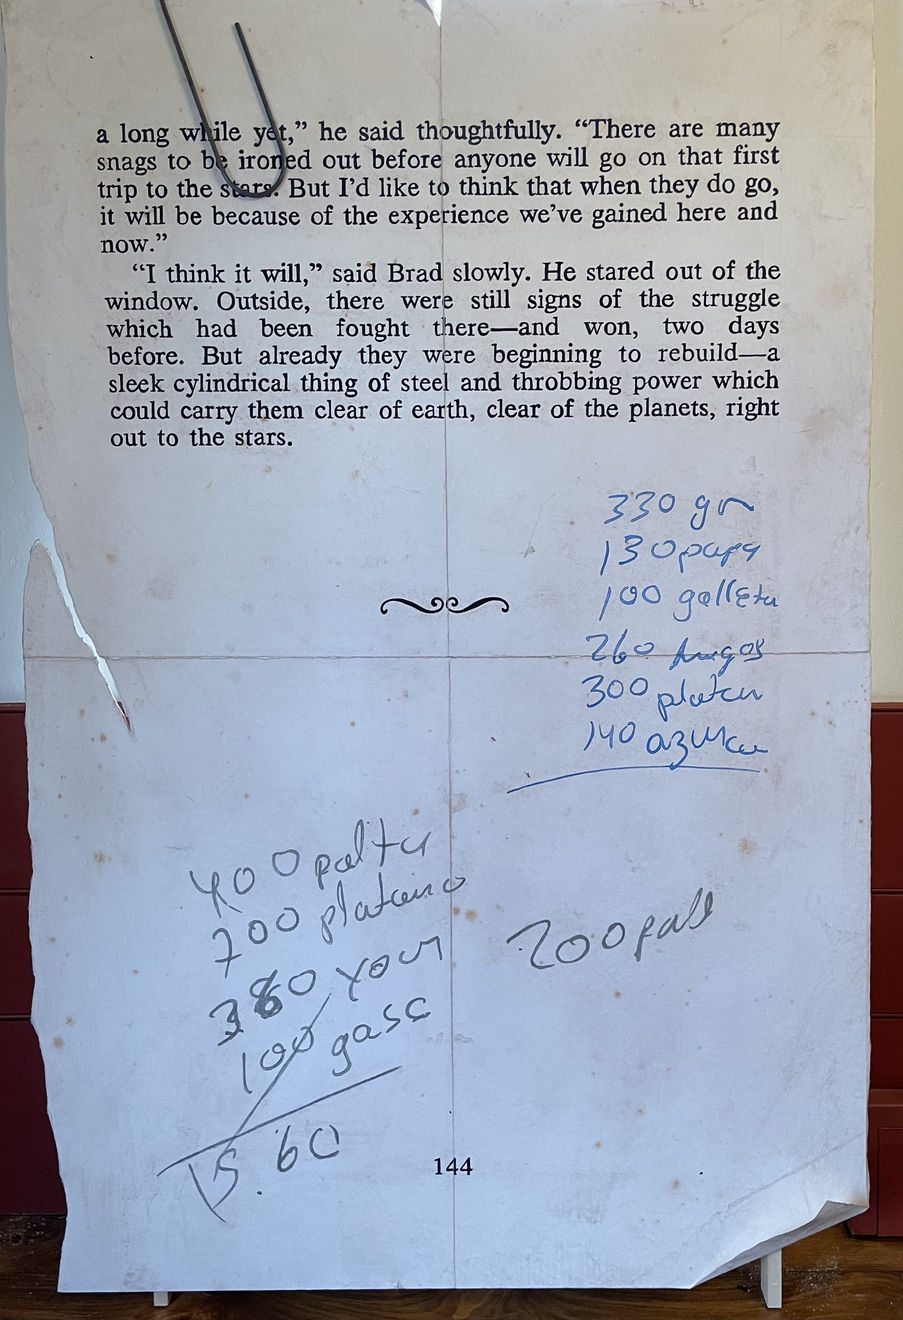 a long while yet,” he said thoughtfully. “There are many
snags to be ironed out before anyone will go on that first
trip to the stars. But I’d like to think that when they do go,
it will be because of the experience we’ve gained here and
now.”
“I think it will,” said Brad slowly. He stared out of the
window. Outside, there were still signs of the struggle
which had been fought there—and won, two days
before. But already they were beginning to rebuild—a
sleek cylindrical thing of steel and throbbing power which
could carry them clear of earth, clear of the planets, right
out to the stars.
330 gr
130 papa
100 galleta
260
300
140 azucar
400 palta
700 platano
380 your
100 gasa
15.60
200
144